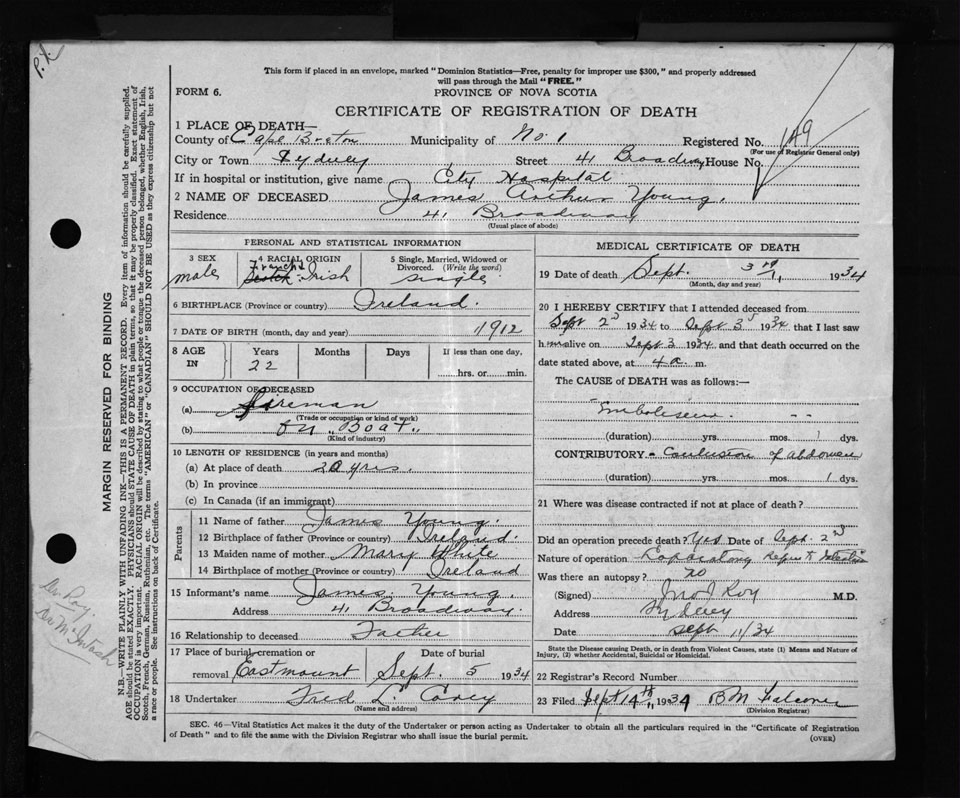 P.X.
This form if placed in an envelope, marked "Dominion Statistics—Free, penalty for improper use $300," and properly addressed
will pass through the Mail "FREE."
FORM 6.
PROVINCE OF NOVA SCOTIA
CERTIFICATE OF REGISTRATION OF DEATH
1 PLACE OF DEATH—
County of Cape Breton Municipality of No. 1 Registered No. 149
(For use of Registrar General only)
City or Town Sydney Street 41 Broadway House No.
If in hospital or institution, give name City Hospital
2 NAME OF DECEASED James Arthur Young.
Residence 41 Broadway
(Usual place of abode)
PERSONAL AND STATISTICAL INFORMATION
3 SEX
male
4 RACIAL ORIGIN
French
Scotch Irish
5 Single, Married, Widowed or Divorced. (Write the word)
single
6 BIRTHPLACE (Province or country) Ireland.
7 DATE OF BIRTH (month, day and year) 1912
8 AGE IN
Years Months Days If less than one day,
22
hrs. or min.
9 OCCUPATION OF DECEASED
(a) Fireman
(Trade or occupation or kind of work)
(b) on "Boat"
(Kind of industry)
10 LENGTH OF RESIDENCE (in years and months)
(a) At place of death 20 yrs.
(b) In province
(c) In Canada (if an immigrant)
Parents
11 Name of father James Young.
12 Birthplace of father (Province or country) Ireland.
13 Maiden name of mother Mary White
14 Birthplace of mother (Province or country) Ireland
15 Informant's name James Young.
Address 41 Broadway.
16 Relationship to deceased Father
17 Place of burial, cremation or removal Eastmount
Date of burial
Sept. 5 1934
18 Undertaker Fred L Curry
(Name and address)
MEDICAL CERTIFICATE OF DEATH
19 Date of death Sept. 3rd 1934
(Month, day and year)
20 I HEREBY CERTIFY that I attended deceased from
Sept 2d 1934 to Sept 3d 1934 that I last saw
him alive on Sept 3 1934 and that death occurred on the
date stated above, at 4 a. m.
The CAUSE OF DEATH was as follows:—
Embolism.
(duration) yrs. mos. 1 dys.
CONTRIBUTORY - Contusion of abdomen
(duration) yrs. mos. 1 dys.
21 Where was disease contracted if not at place of death?
Did an operation precede death? Yes Date of Sept. 2nd
Nature of operation Exploratory
Was there an autopsy? no
(Signed) Jno J Roy M.D.
Address Sydney
Date Sept 11/34
State the Disease causing Death, or in death from Violent Causes, state (1) Means and Nature of Injury, (2) whether Accidental, Suicidal or Homicidal.
22 Registrar's Record Number
23 Filed Sept 14th 1934 B M
(Division Registrar)
SEC. 46—Vital Statistics Act makes it the duty of the Undertaker or person acting as Undertaker to obtain all the particulars required in the "Certificate of Registration
of Death" and to file the same with the Division Registrar who shall issue the burial permit.
(OVER)
MARGIN RESERVED FOR BINDING
N.B.—WRITE PLAINLY WITH UNFADING INK—THIS IS A PERMANENT RECORD. Every item of information should be carefully supplied.
AGE should be stated EXACTLY. PHYSICIANS should STATE CAUSE OF DEATH in plain terms, so that it may be properly classified. Exact statement of
OCCUPATION is very important. RACIAL ORIGIN will be described by stating to what people or tongue the deceased person belonged, whether English, Irish,
Scotch, French, German, Russian, Ruthenian, etc. The terms "AMERICAN" or "CANADIAN" SHOULD NOT BE USED as they express citizenship but not
a race or people. See instructions on back of Certificate.
Dr Roy.
Dr McIntosh